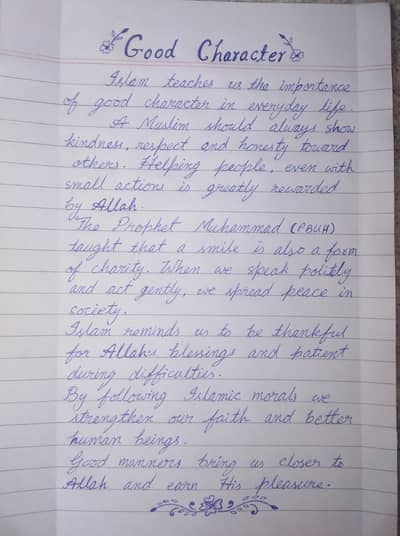 Good Character
Islam teaches us the importance
of good character in everyday life.
A Muslim should always show
kindness, respect and honesty toward
others. Helping people, even with
small actions is greatly rewarded
by Allah.
The Prophet Muhammad (PBUH)
taught that a smile is also a form
of charity. When we speak politly
and act gently, we spread peace in
society.
Islam reminds us to be thankful
for Allah's blessings and patient
during difficulties.
By following Islamic morals we
strengthen our faith and better
human beings.
Good manners bring us closer to
Allah and earn His pleasure.